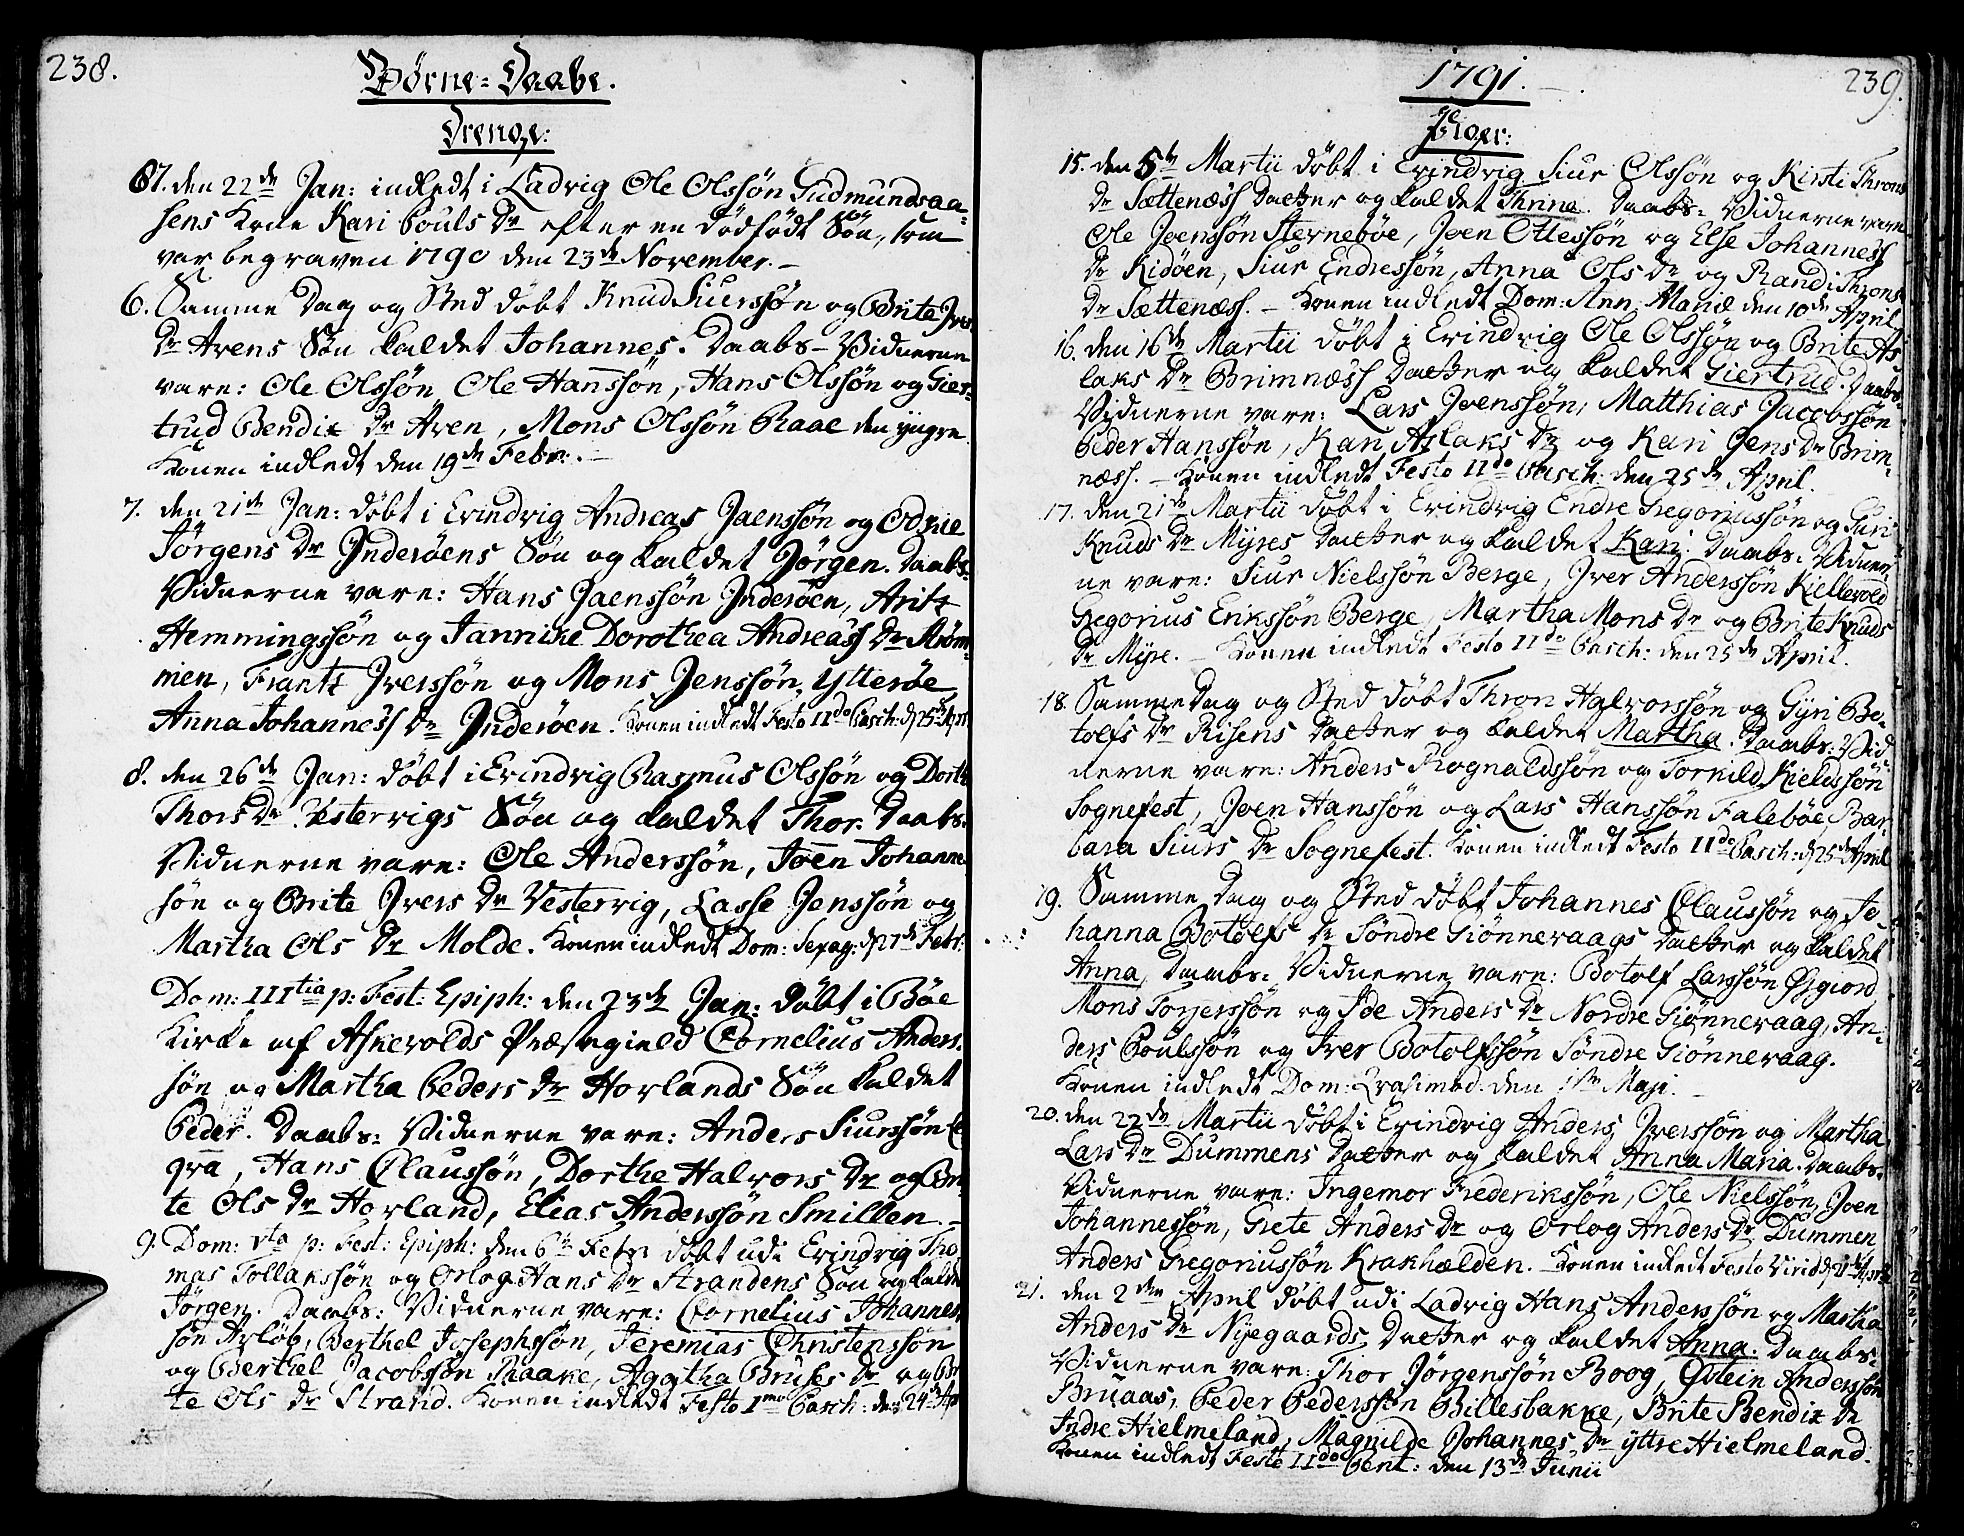 238.
Børne-Daabe.
Drenge:
den 22de Jan: indledt i Ladvig Ole Olssøn Gudmundsaa-
sens Kone Kari Pouls Dr efter en dødfødt Søn, som
var begraven 1790 den 23de November. -
6. Samme Dag og Sted døbt Knud Siurssøn og Brite Ivers
Dr Arens Søn kaldet Johannes. Daabs-Vidnerne
vare: Ole Olssøn Ole Hanssøn, Hans Olssøn og Gier-
trud Bendix Dr Aren, Mons Olssøn Raae den yngre.
Konen indledt den 19de Febr: . -
7. den 21de Jan: døbt i Evindvig Andreas Jaenssøn og Odnie
Jørgens Dr Inderøens Søn og kaldet Jørgen. Daabs-
Vidnerne vare: Hans Jaenssøn Inderøen, Arit
Hemmingssøn og Jannike Dorothea Andreass Dr Strøm-
men, Frantz Iverssøn og Mons Jenssøn Ytterøe,
Anna Johanness Dr Inderøen. Konen indledt Festo IIdo Pasch: d 25de April
8. den 26de Jan: døbt i Evindvig Rasmus Olssøn og Dorte
Thors Dr Vestervigs Søn og kaldet Thor. Daabs-
Vidnerne vare: Ole Anderssøn, Joen Johannes-
søn og Brite Ivers Dr Vestervig, Lasse Jenssøn og
Martha Ols Dr Molde. Konen indledt Dom: Sexag: d 27de Febr:
Dom: IIItia p: Fest: Epiph: den 23de Jan: døbt i Bøe
Kirke af Askevolds Præstegield Cornelius Anders-
søn og Martha Peders Dr Horlands Søn kaldet
Peder. Daabs-Vidnerne vare: Anders Siurssøn
Hans Claussøn, Dorthe Halvors Dr og Bri-
te Ols Dr Horland, Elias Anderssøn Smillen. -
9. Dom: Vta p: Fest: Epiph: den 6te Febr døbt udi Evindvig Tho-
mas Tollakssøn og Orlog Hans Dr Strandens Søn og kaldet
Jørgen. Daabs-Vidnerne vare: Cornelius Johannes-
søn Arløb, Berthel Josephssøn, Jeremias Christenssøn
og Berthel Jacobssøn Raake, Agatha Bruses Dr og Bri-
te Ols Dr Strand. Konen indledt Festo Imo Pasch: den 24de Ap
1791.
239.
Piger:
15. den 5te Martii døbt i Evindvig Siur Olssøn og Kirsti Throns
Dr Sættenæss Datter og kaldet Thrine. Daabs-Vidnerne vare
Ole Joenssøn Sternebøe, Joen Ottessøn og Else Johanness
Dr Kidøen, Siur Endressøn, Anna Ols Dr og Randi Throns
Dr Sættenæss. - Konen indledt Dom: Ann: Mariæ den 10de April
16. den 16de Martii døbt i Evindvig Ole Olssøn og Brite As-
laks Dr Brimnæss Datter og kaldet Giertrud. Daabs-
Vidnerne vare: Lars Joenssøn, Matthias Jacobssøn
Peder Hanssøn, Kari Aslaks Dr og Kari Jens Dr Brim-
næss. - Konen indledt Festo IIdo Pasch: den 25de April.
17. den 21de Martii døbt i Evindvig Endre Gregoriussøn og Guri
Knuds Dr Myres Datter og kaldet Kari. Daabs-Vidner-
ne vare: Siur Nielssøn Berge, Iver Anderssøn Kiellevold
Gregorius Erikssøn Berge, Martha Mons Dr og Brite Knuds
Dr Myre. - Konen indledt Festo IIdo Pasch: den 25de April.
18. Samme Dag og Sted døbt Thron Halvorssøn og Gyri Bo-
tolfs Dr Risens Datter og kaldet Martha. Daabs-Vid-
nerne vare: Anders Rognaldssøn og Torkild Kieldssøn
Sognefest, Joen Hanssøn og Lars Hanssøn Falebøe, Bar-
bara Siurs Dr Sognefest. Konen indledt Festo IIdo Pasch: d 25de April
19. Samme Dag og Sted døbt Johannes Claussøn og Jo-
hanna Botolfs Dr Søndre Giønneraags Datter og kaldet
Anna, Daabs-Vidnerne vare: Botolf Larssøn
Mons Torjerssøn og Ide Anders Dr Nordre Giønneraag, An-
ders Poulssøn og Iver Botolfssøn Søndre Giønneraag.
Konen indledt Dom: Qvasimod: den 1ste Maji. -
20. den 22de Martii døbt i Evindvig Anders Iverssøn og Martha
Lars Dr Dummens Datter og kaldet Anna Maria. Daabs-
Vidnerne vare: Ingemor Frederikssøn, Ole Nielssøn, Joen
Johannessøn, Grete Anders Dr og Orlog Anders Dr Dummen
Anders Gregoriussøn Krakhælden. Konen indledt Festo Virid: d 21de April
21. den 2den April døbt udi Ladvig Hans Anderssøn og Martha
Anders Dr Nyegaards Datter og kaldet Anna. Daabs-
Vidnerne vare: Thor Jørgenssøn Boog, Østein Anderssøn
Bruaas, Peder Pederssøn Billesbakke, Brite Bendix Dr
Indre Hielmeland, Magnilde Johannes Dr yttre Hielmeland.
Konen indledt Festo IIdo Pent: den 13de Junii